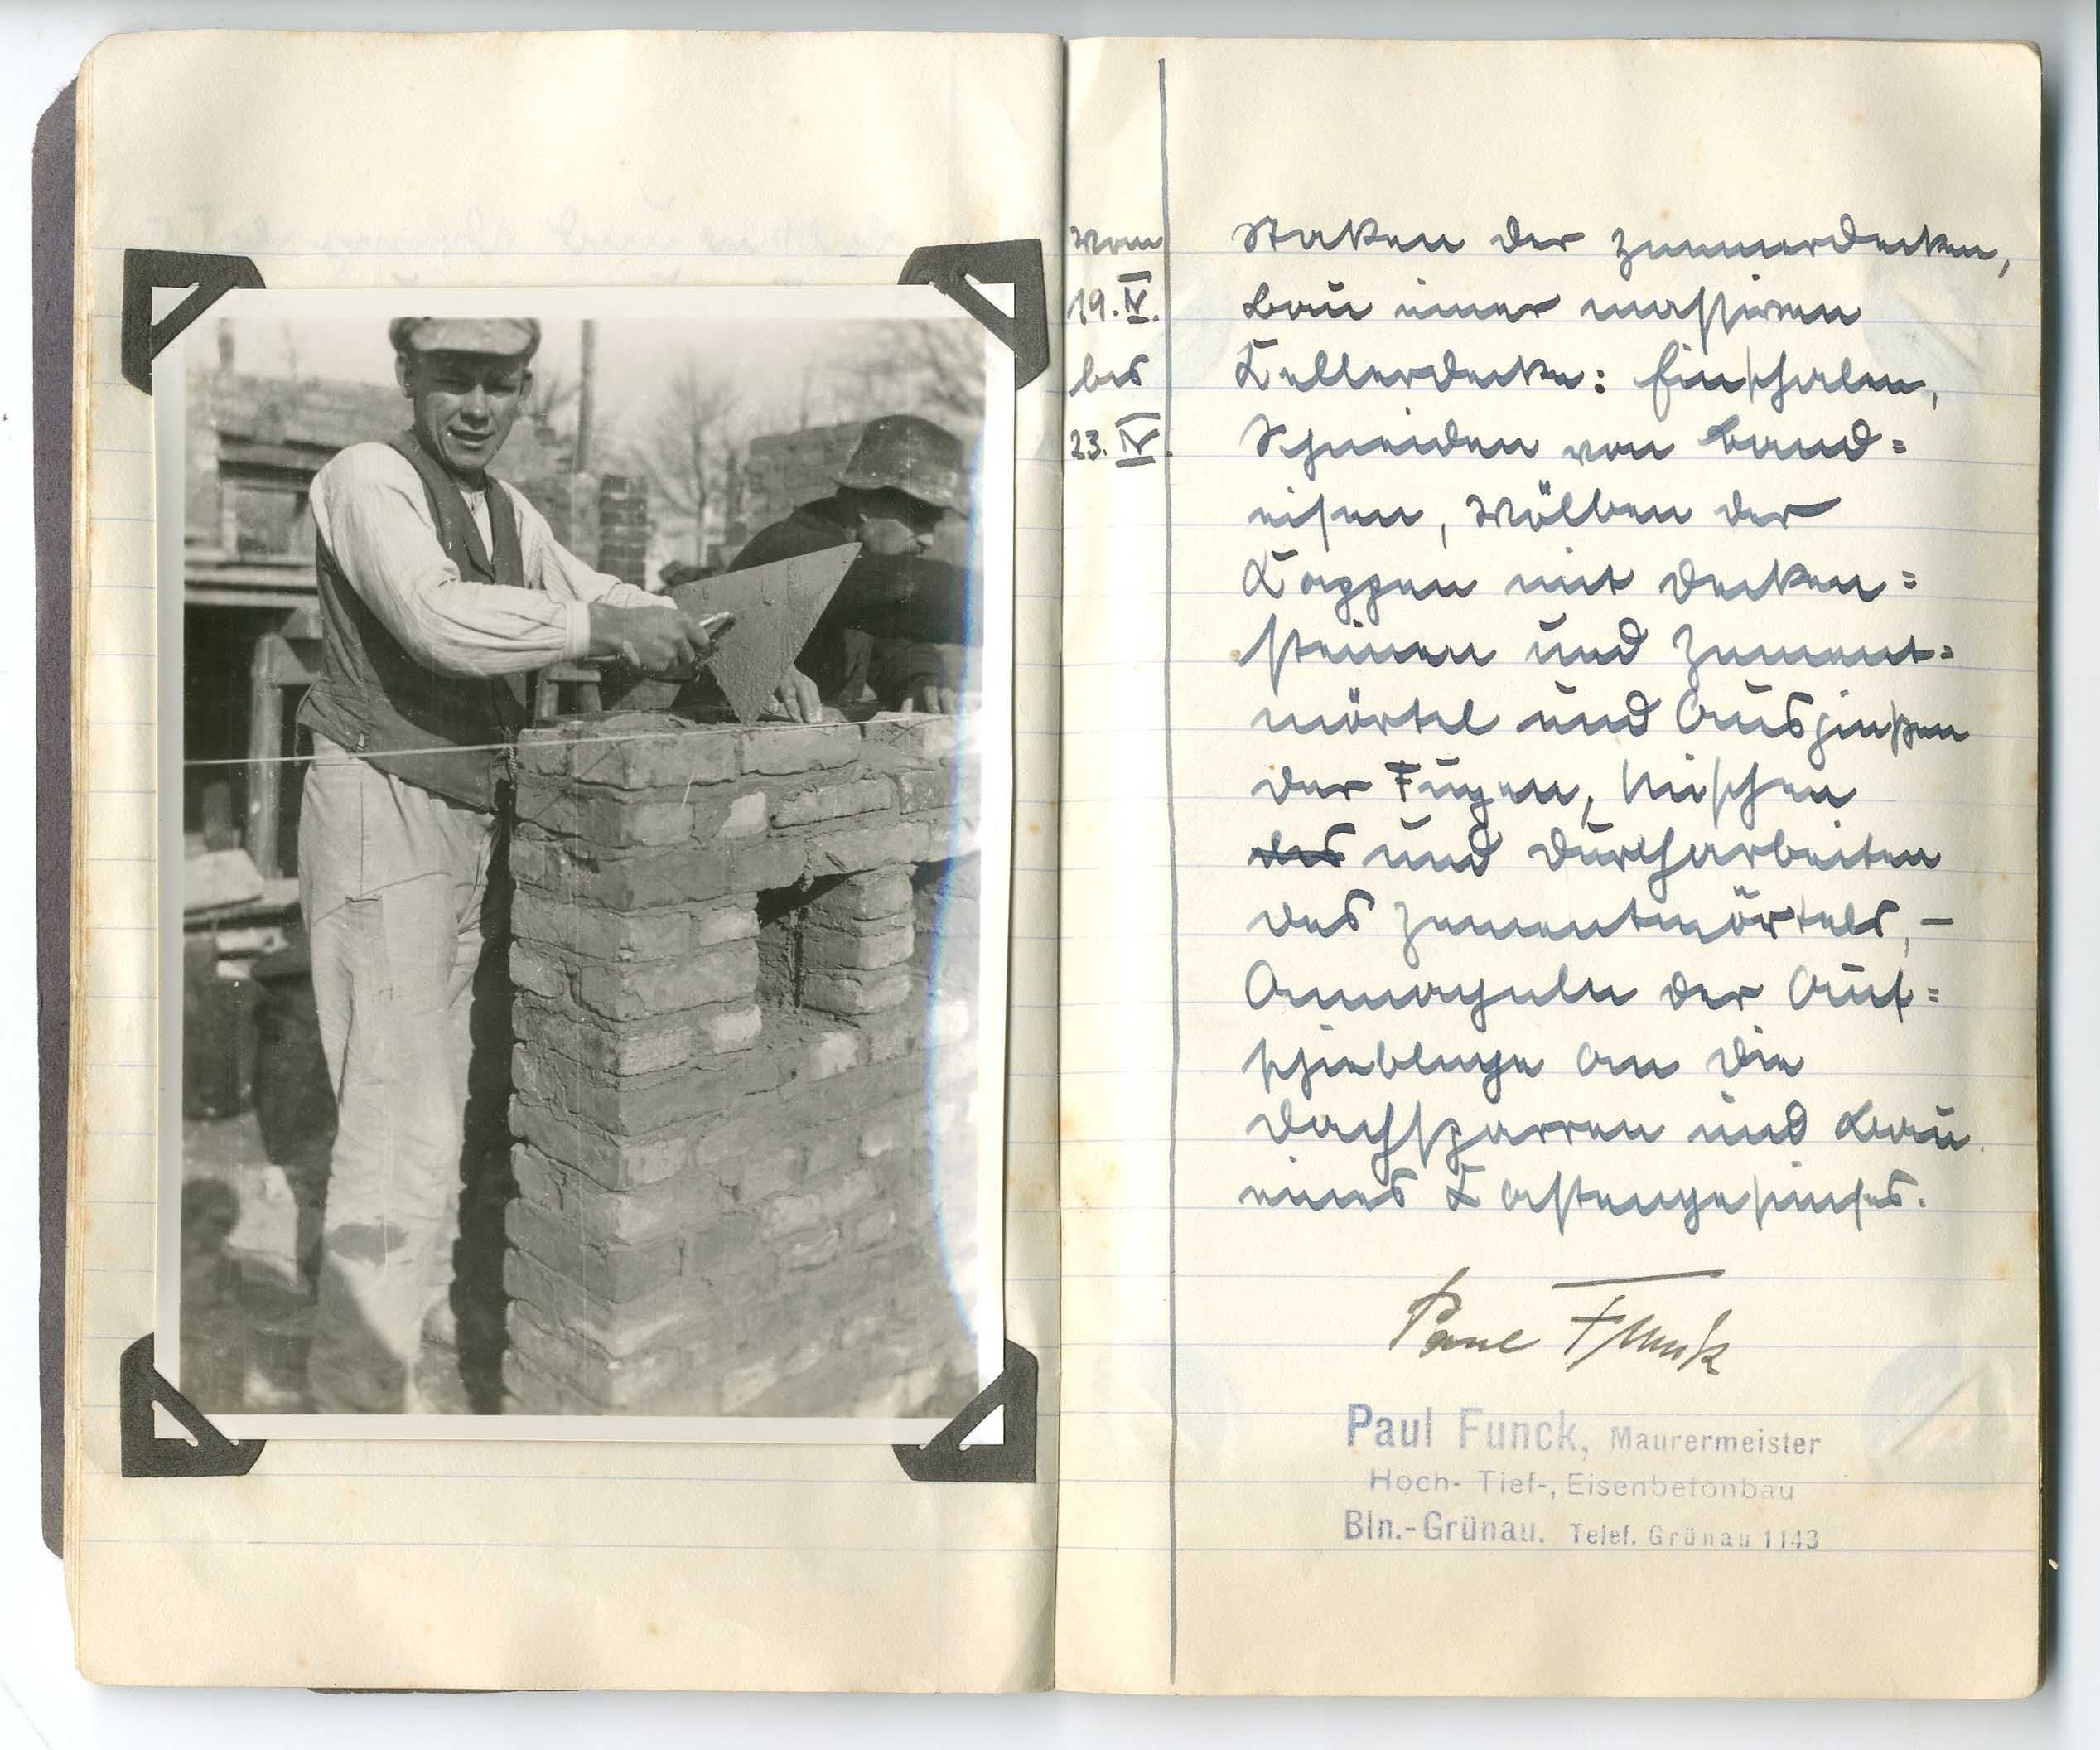 vom
19. IV.
bis
23. IV.
Staken der Zimmerdecken,
Bau einer massiven
Kellerdecke: Einschalen,
Schneiden von Band=
eisen, Wölben der
Kappen mit Decken=
steinen und Zement=
mörtel und Ausgießen
der Fugen, Mischen
des und Durcharbeiten
des Zementmörtels, –
Annageln der Auf=
schieblinge an die
Dachsparren und Bau
eines Kastengesimses.
Paul Funck
Paul Funck, Maurermeister
Hoch- Tief-, Eisenbetonbau
Bln.-Grünau. Telef. Grünau 1143